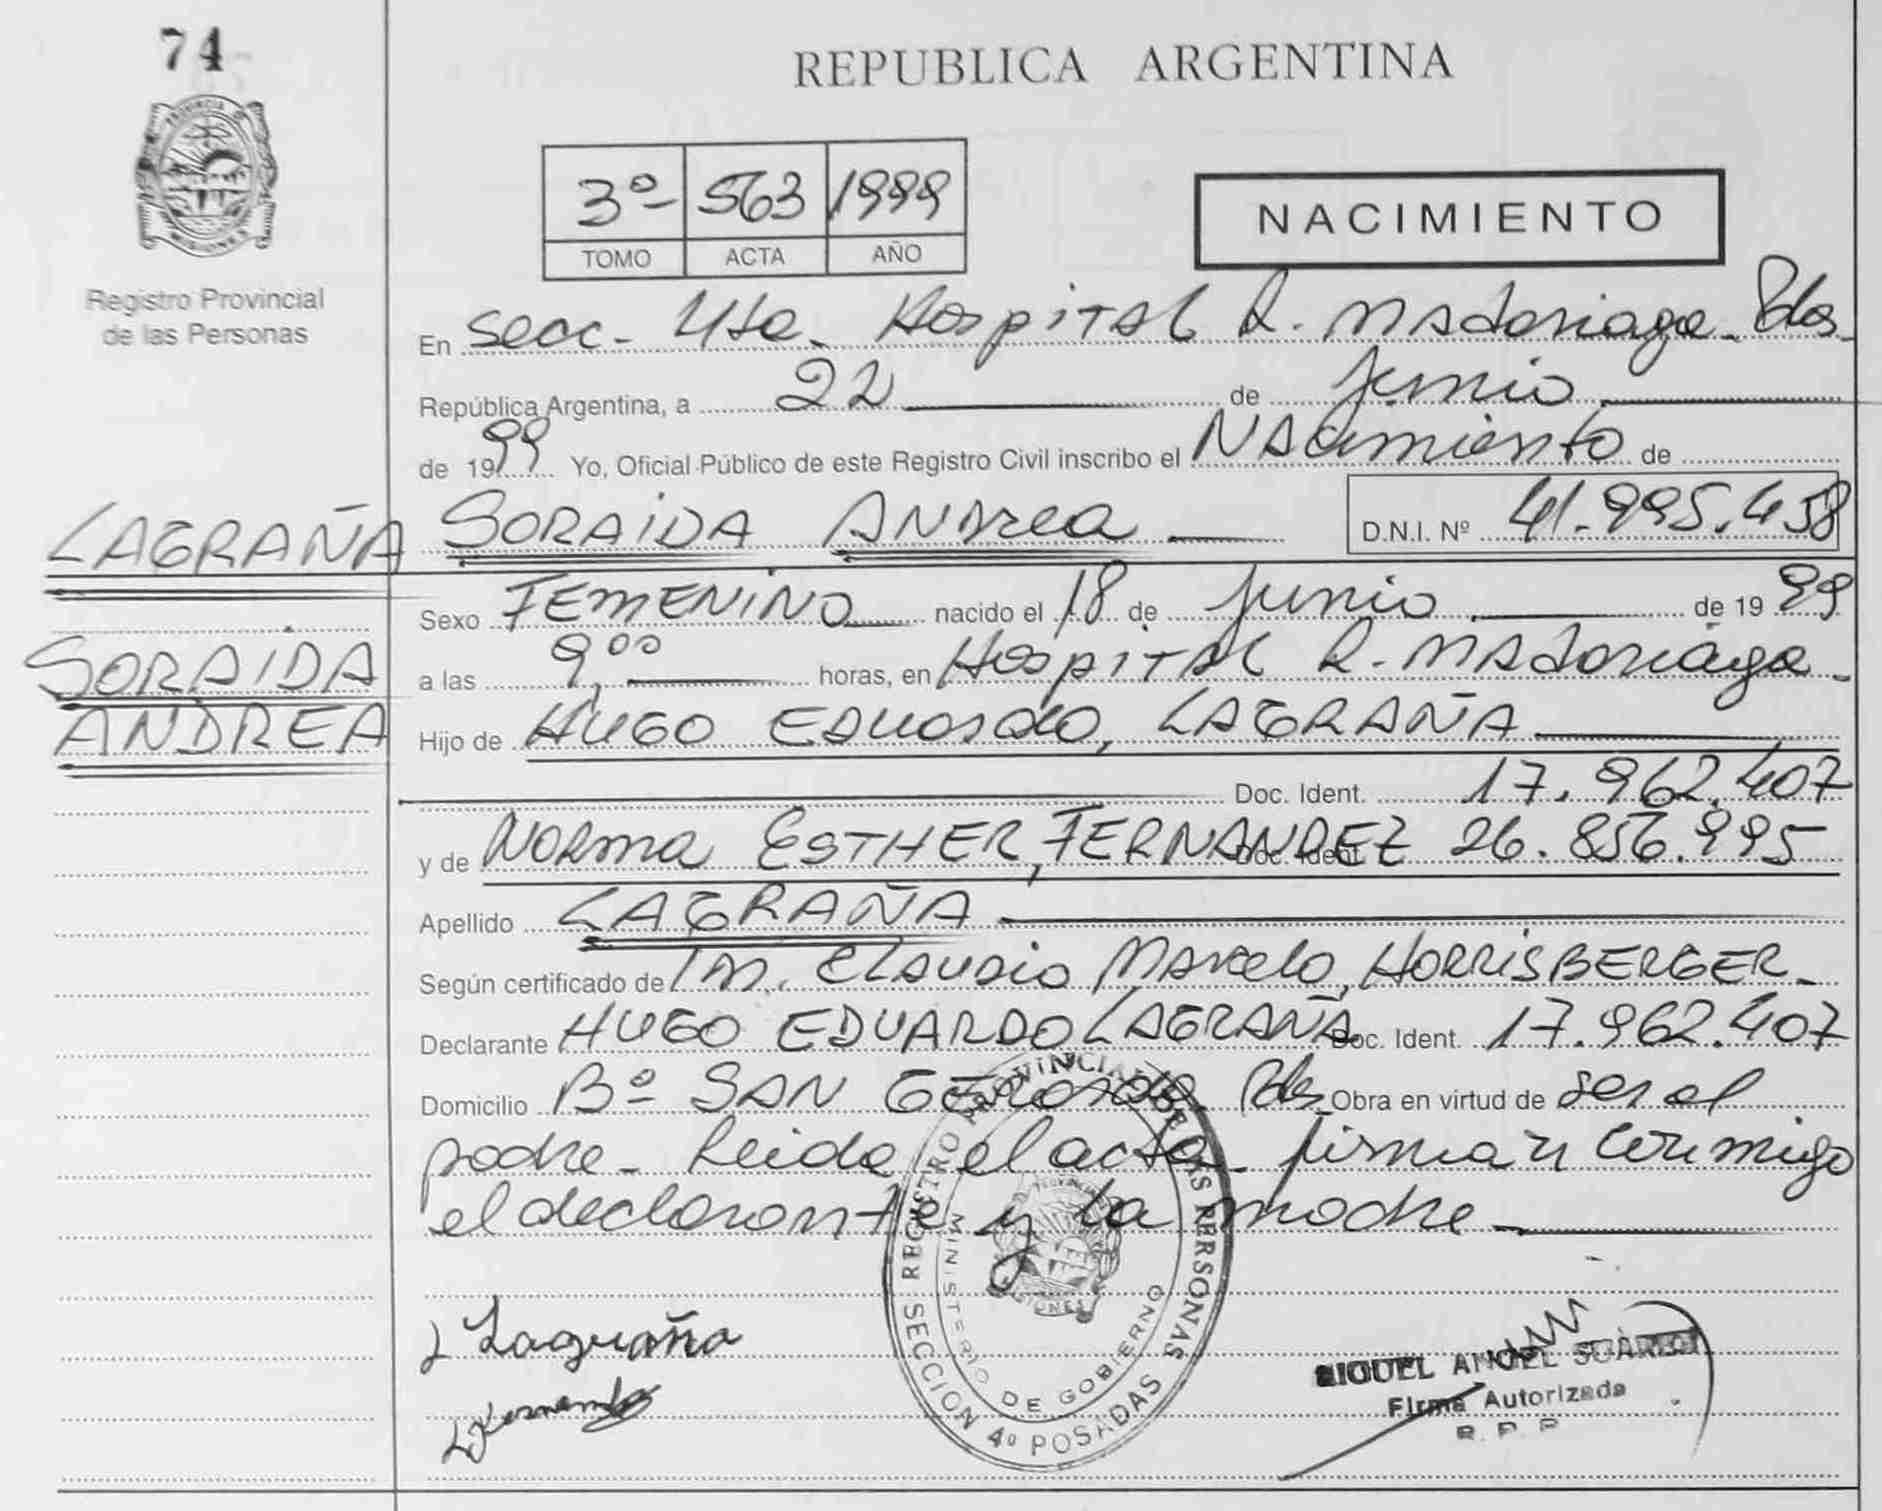 74
REPUBLICA ARGENTINA
PROVINCIA DE
MISIONES
Registro Provincial
de las Personas
3º 563 1999
TOMO ACTA AÑO
NACIMIENTO
En Secc. 4ta. Hospital R. Madariaga - Pdas -
República Argentina, a 22 de junio
de 1999 Yo, Oficial Público de este Registro Civil inscribo el NAcimiento de
LAGRAÑA SORAIDA ANDREA D.N.I. Nº 41.995.458
Sexo FEMENINO nacido el 18 de junio de 1999
SORAIDA
a las 9,00 horas, en Hospital R. Madariaga -
ANDREA
Hijo de HUGO Eduardo, LAGRAÑA
Doc. Ident. 17.962.407
y de NORMA ESTHER, FERNANDEZ Doc. Ident. 26.856.995
Apellido LAGRAÑA
Según certificado de Claudio Marcelo, HORRISBERGER -
Declarante HUGO EDUARDO LAGRAÑA Doc. Ident. 17.962.407
Domicilio Bº SAN Gerardo Pdas Obra en virtud de ser el
padre - Leida el acta - firman conmigo
el declarante y la madre -
REGISTRO PROVINCIAL DE LAS PERSONAS
MINISTERIO DE GOBIERNO
SECCION 4º POSADAS
MISIONES
Lagraña
MIGUEL ANGEL SUAREZ
Firma Autorizada
R. P. P